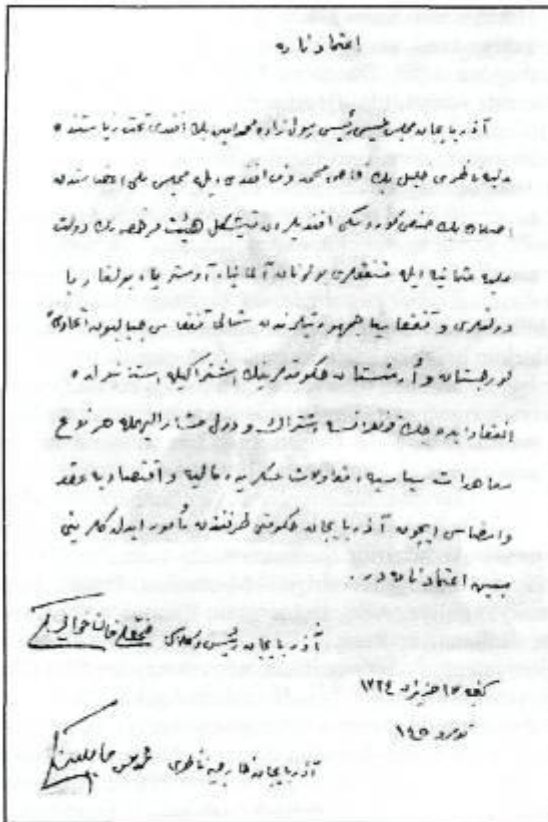 اعتمادنامه
آذربايجان مجلس ملیسی رئیسی رسول زاده محمد امین بك افندی تحت ریاستنده
عدلیه ناظری خلیل بك خاص محمدوف افندی ایله مجلس ملی اعضاسندن
اصلان بك صفی کوردسکی افندیلردن تشکل هیئت مرخصه نك دولت
علیه عثمانیه ایله متفقلری بولونان آلمانیا، آوستریا، بولغاریا
دولتلری و قفقاسیا جمهوریتلرندن شمالی قفقاس جبالیون اتحادی
کورجستان و أرمنستان حکومتلرینك اشتراکیله استانبولده
انعقاد ایده جك قونفرانسه اشتراك و دول مشار الیهمله هر نوع
معاهدات سیاسیه، مقاولات عسکریه، مالیه و اقتصادیه عقد
وامضاسی ایچون آذربايجان حکومتی طرفندن مأمور ایدلدکلرینی
مبین اعتمادنامه در
آذربايجان رئیس وکلاسی فتحعلی خان خویسکی
کنجه ١٣ حزیران ١٣٣٤
نومرو ١٤٥
آذربايجان خارجیه ناظری محمد حسن حاجینسکی